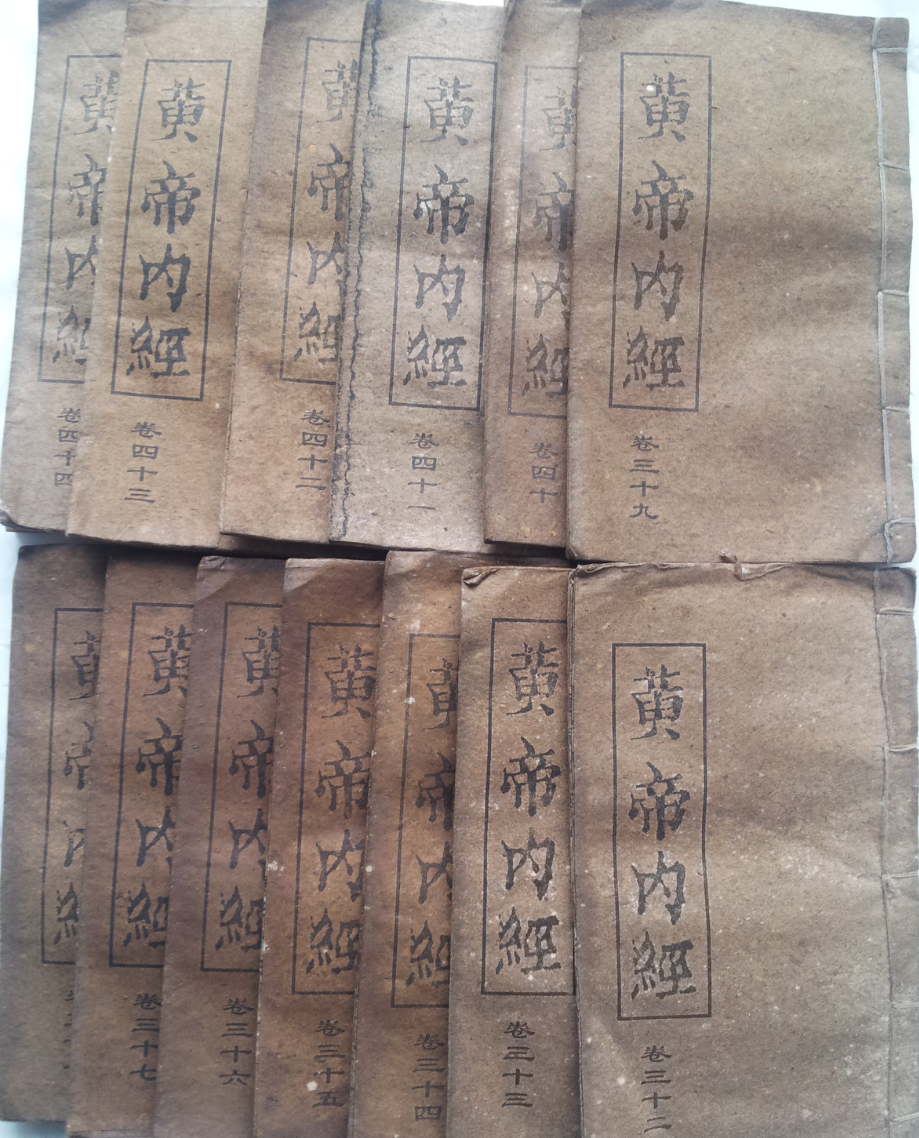 黄帝内經
卷三十九
黄帝内經
卷四十
黄帝内經
卷四十一
黄帝内經
卷四十二
黄帝内經
卷四十三
黄帝内經
卷四十四
黄帝内經
卷三十二
黄帝内經
卷三十三
黄帝内經
卷三十四
黄帝内經
卷三十五
黄帝内經
卷三十六
黄帝内經
卷三十七
黄帝内經